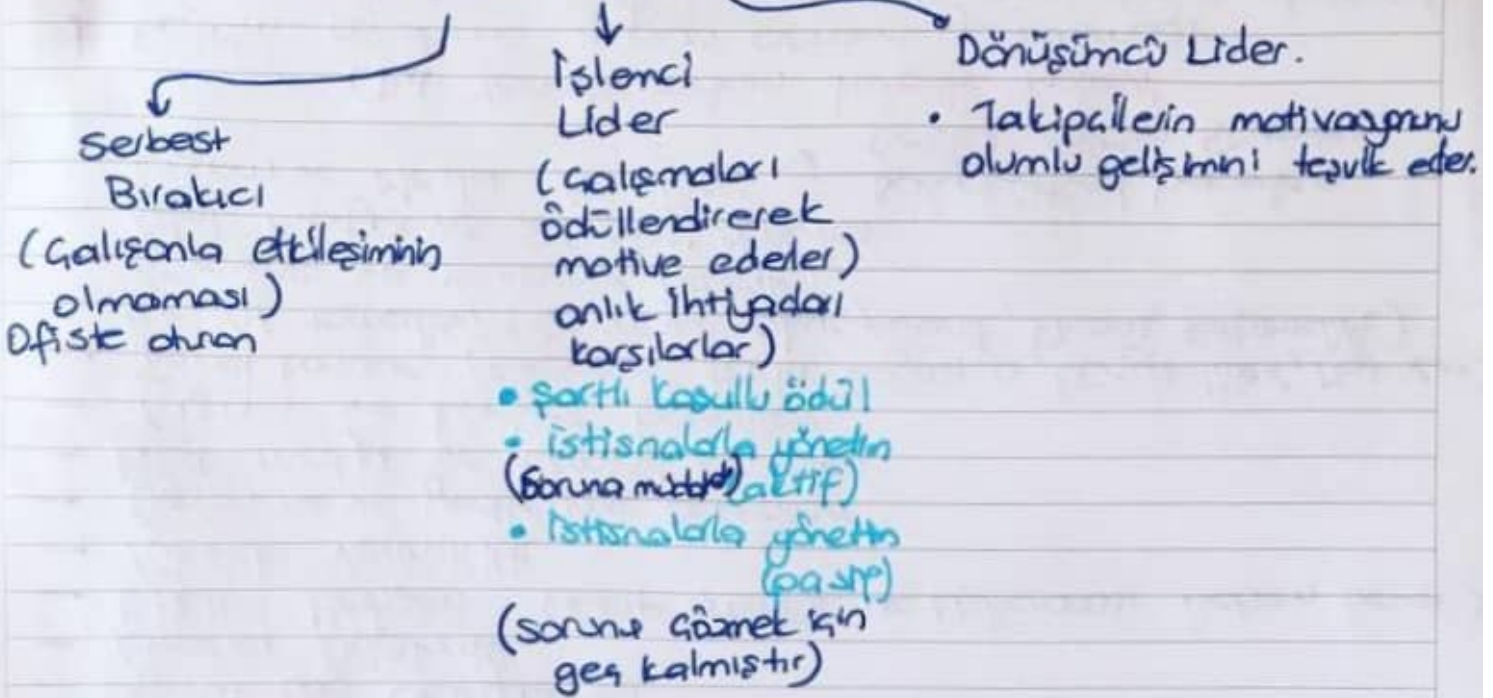 Serbest
Bırakıcı
(Çalışanla etkileşiminin
olmaması)
Ofiste oturan
İşlemci
Lider
(Çalışmaları
ödüllendirerek
motive ederler)
anlık ihtiyaçları
karşılarlar)
• Şartlı koşullu ödül
• istisnalarla yönetim
(Soruna müdahale) (aktif)
• istisnalarla yönetim
(pasif)
(sorunu çözmek için
geç kalmıştır)
Dönüşümcü Lider.
• Takipçilerin motivasyonunu
olumlu gelişimini teşvik eder.